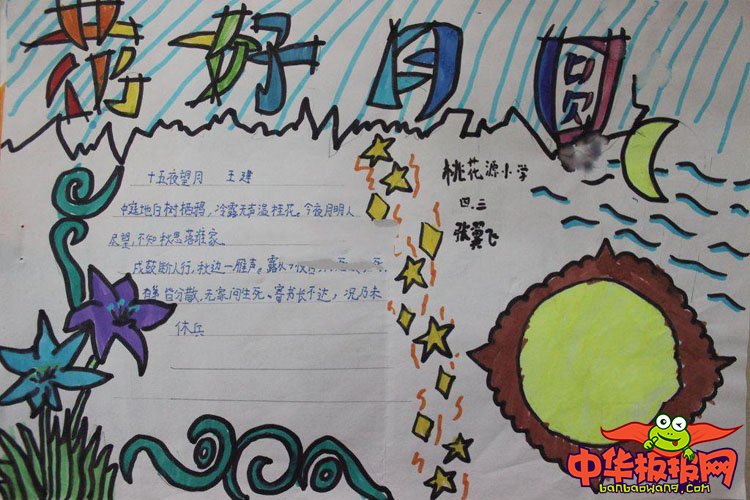 花好月圆
十五夜望月 王建
中庭地白树栖鸦，冷露无声湿桂花。今夜月明人
尽望，不知秋思落谁家。
戍鼓断人行，秋边一雁声。露从今夜
有弟皆分散，无家问生死、寄书长不达，况乃未
休兵
桃花源小学
四.三
张翼飞
中华板报网
banbaowang.com